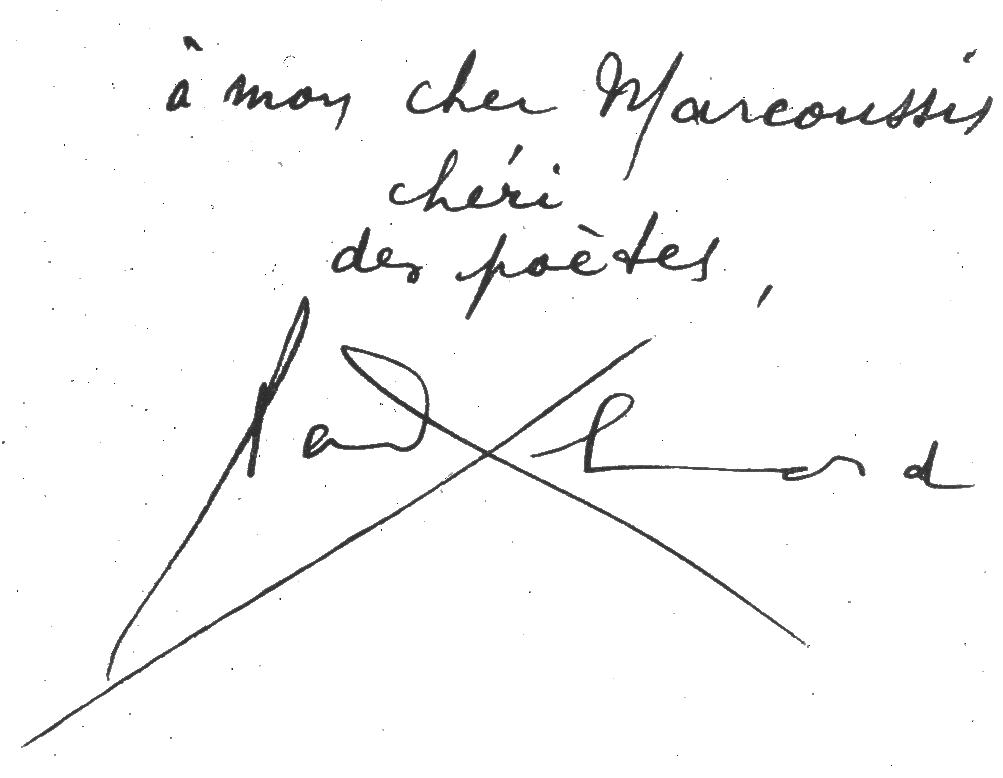 à mon cher Marcoussis
chéri
des poètes,
Paul Eluard